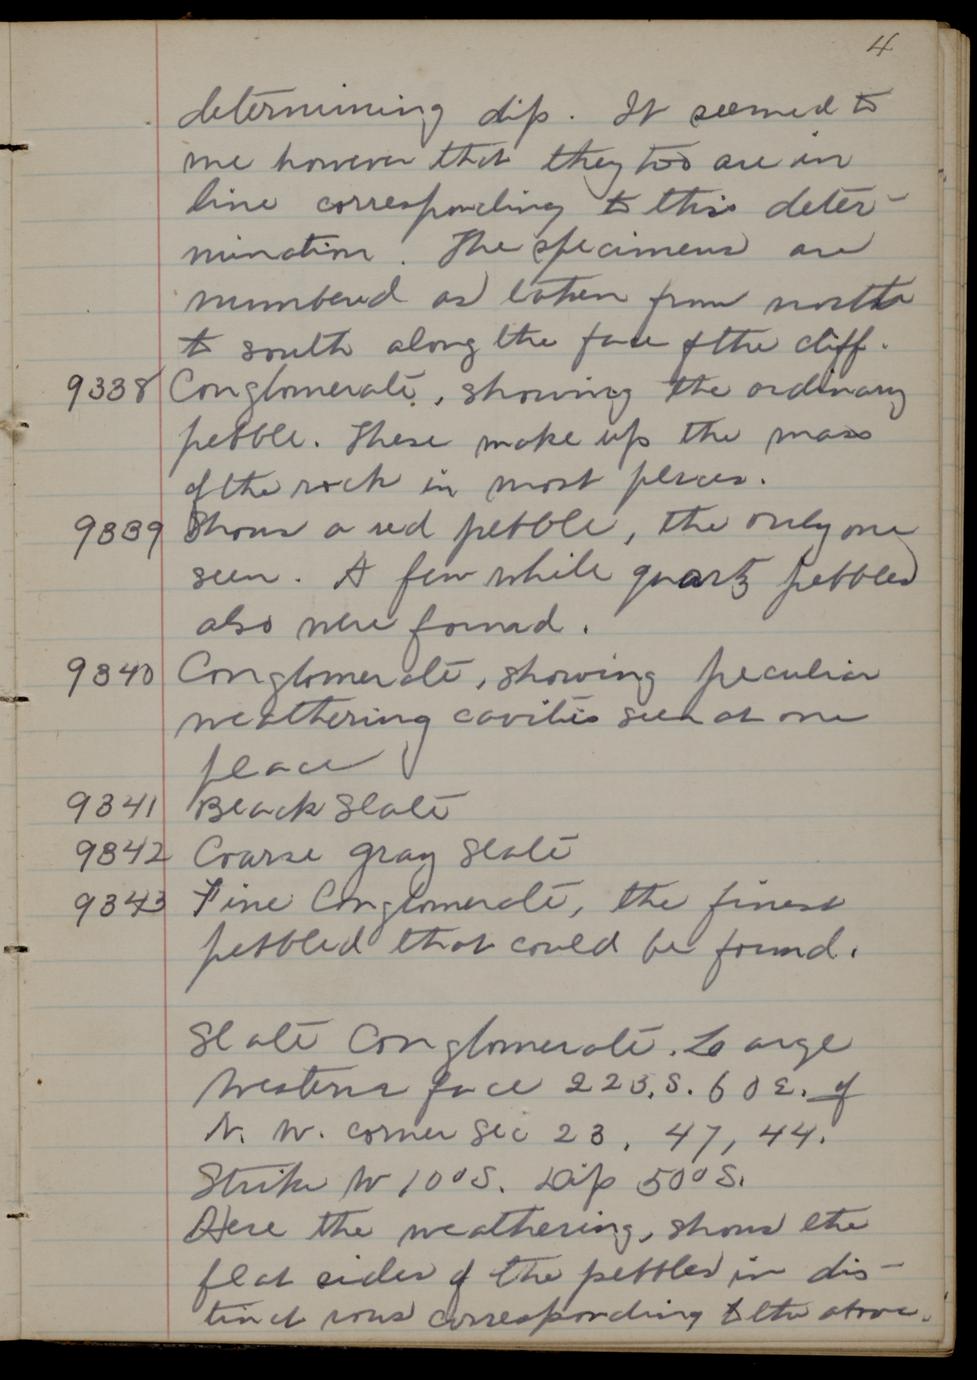 4
determining dip. It seemed to
me however that they too are in
line corresponding to this deter-
mination. The specimens are
numbered as taken from north
to south along the face of the cliff.
9338 Conglomerate, showing the ordinary
pebble. These make up the mass
of the rock in most places.
9339 Shows a red pebble, the only one
seen. A few white quartz pebbles
also were found.
9340 Conglomerate, showing peculiar
weathering cavities seen at one
place
9341 Black Slate
9342 Coarse gray Slate
9343 Fine Conglomerate, the finest
pebbled that could be found.
Slate Conglomerate. Large
Western face 223.S. 60 E. of
N. W. corner Sec 23, 47, 44.
Strike W 10° S. Dip 50° S.
Here the weathering, shows the
flat sides of the pebbles in dis-
tinct rows corresponding to the above.